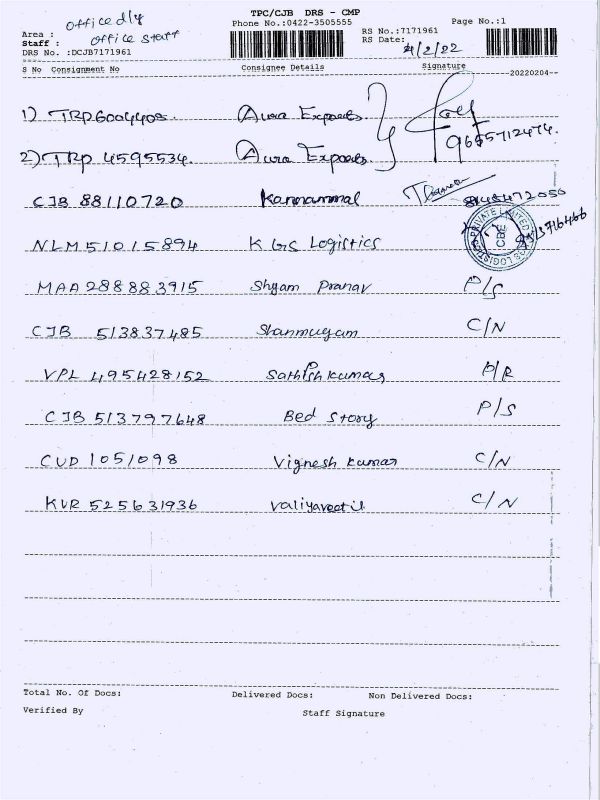 TPC/CJB DRS - CMP
Phone No.:0422-3505555
Page No.:1
Area : office dly
Staff : office staff
DRS No. :DCJB7171961
RS No.:7171961
RS Date: 4/2/22
S No Consignment No Consignee Details Signature
20220204
1) TRP6004405 Aura Exports
9655712474.
2) TRP 4595534 Aura Exports
CJB 88110720 Kannammal
NLM 51015894 K GS Logistics
PRIVATE LIMITED
CBE
LOGISTICS
MAA 288883915 Shyam Pranav P/S
CJB 513837485 Shanmugam C/N
VPL 495428152 Sathishkumar D/R
CJB 513797648 Bed Story P/S
CUD 1051098 Vignesh kumar C/N
KVR 525631936 Valiyaveetil C/N
Total No. Of Docs: Delivered Docs: Non Delivered Docs:
Verified By Staff Signature